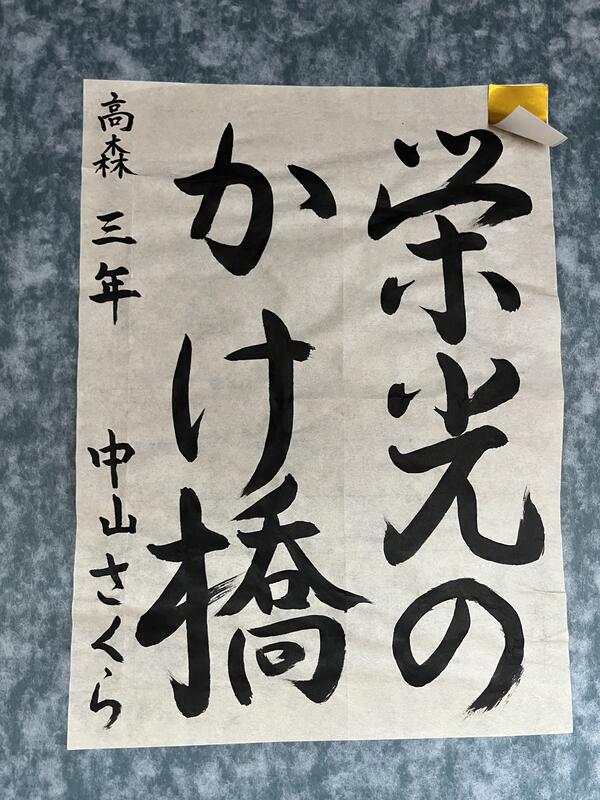 栄光の
かけ橋
高森 三年 中山さくら